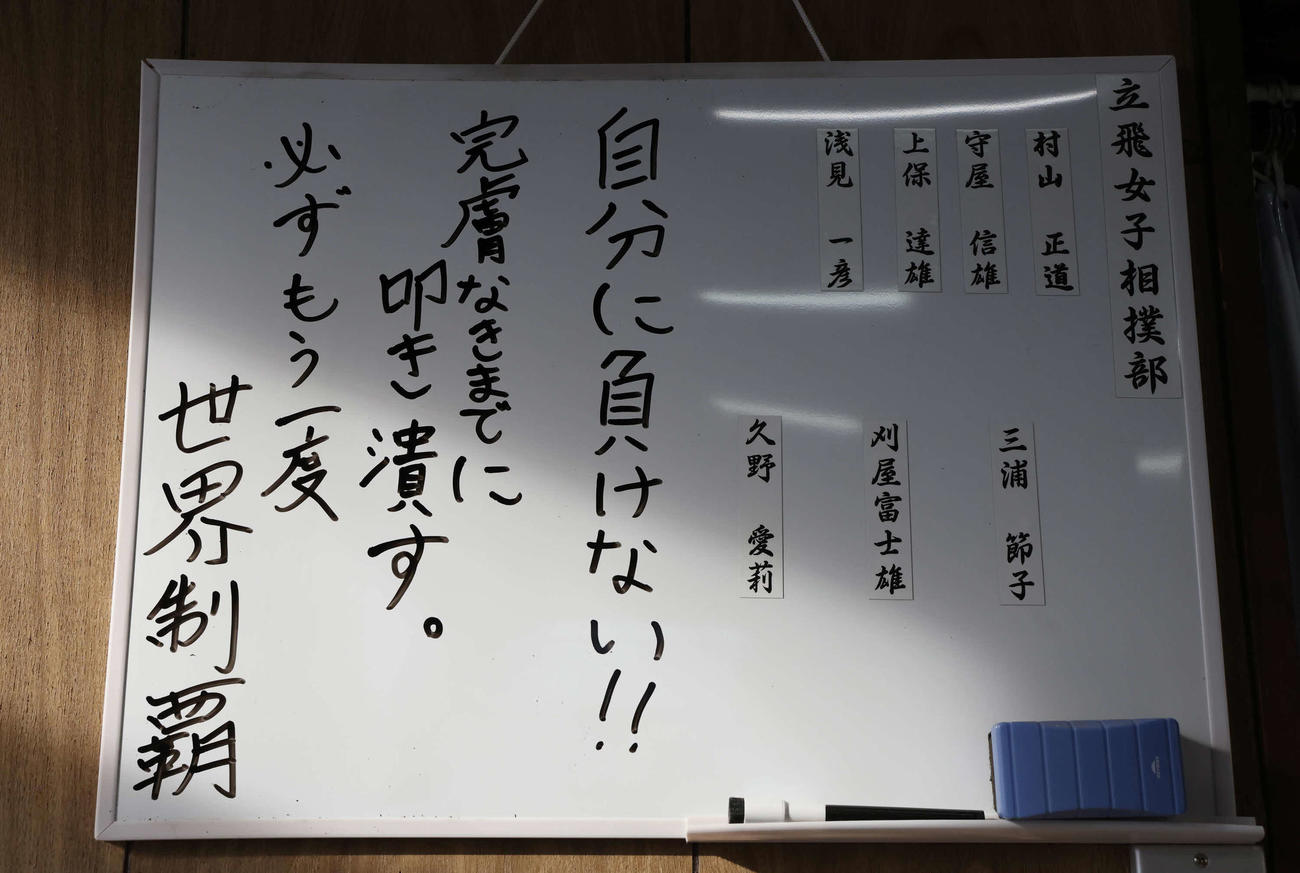 立飛女子相撲部
村山 正道
守屋 信雄
上保 達雄
浅見 一彦
三浦 節子
刈屋富士雄
久野 愛莉
自分に負けない!!
完膚なきまでに
叩き潰す。
必ずもう一度
世界制覇